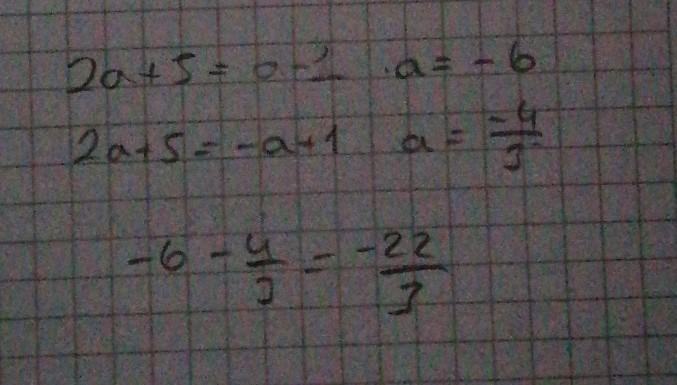 2a+5 = a-1 a = -6
2a+5 = -a+1 a = -4/3
-6 - 4/3 = -22/3